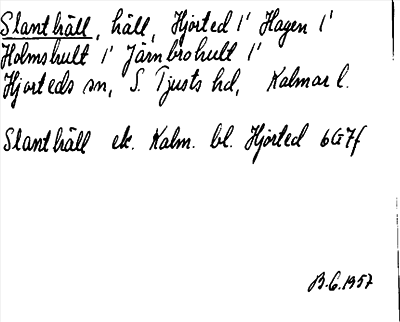 Slanthäll, häll, Hjorted 1' Hagen 1'
Holmshult 1' Järnbrohult 1'
Hjorteds sn, S. Tjusts hd, Kalmar l.
Slanthäll ek. Kalm. bl. Hjorted 6G7f
B.G.1957